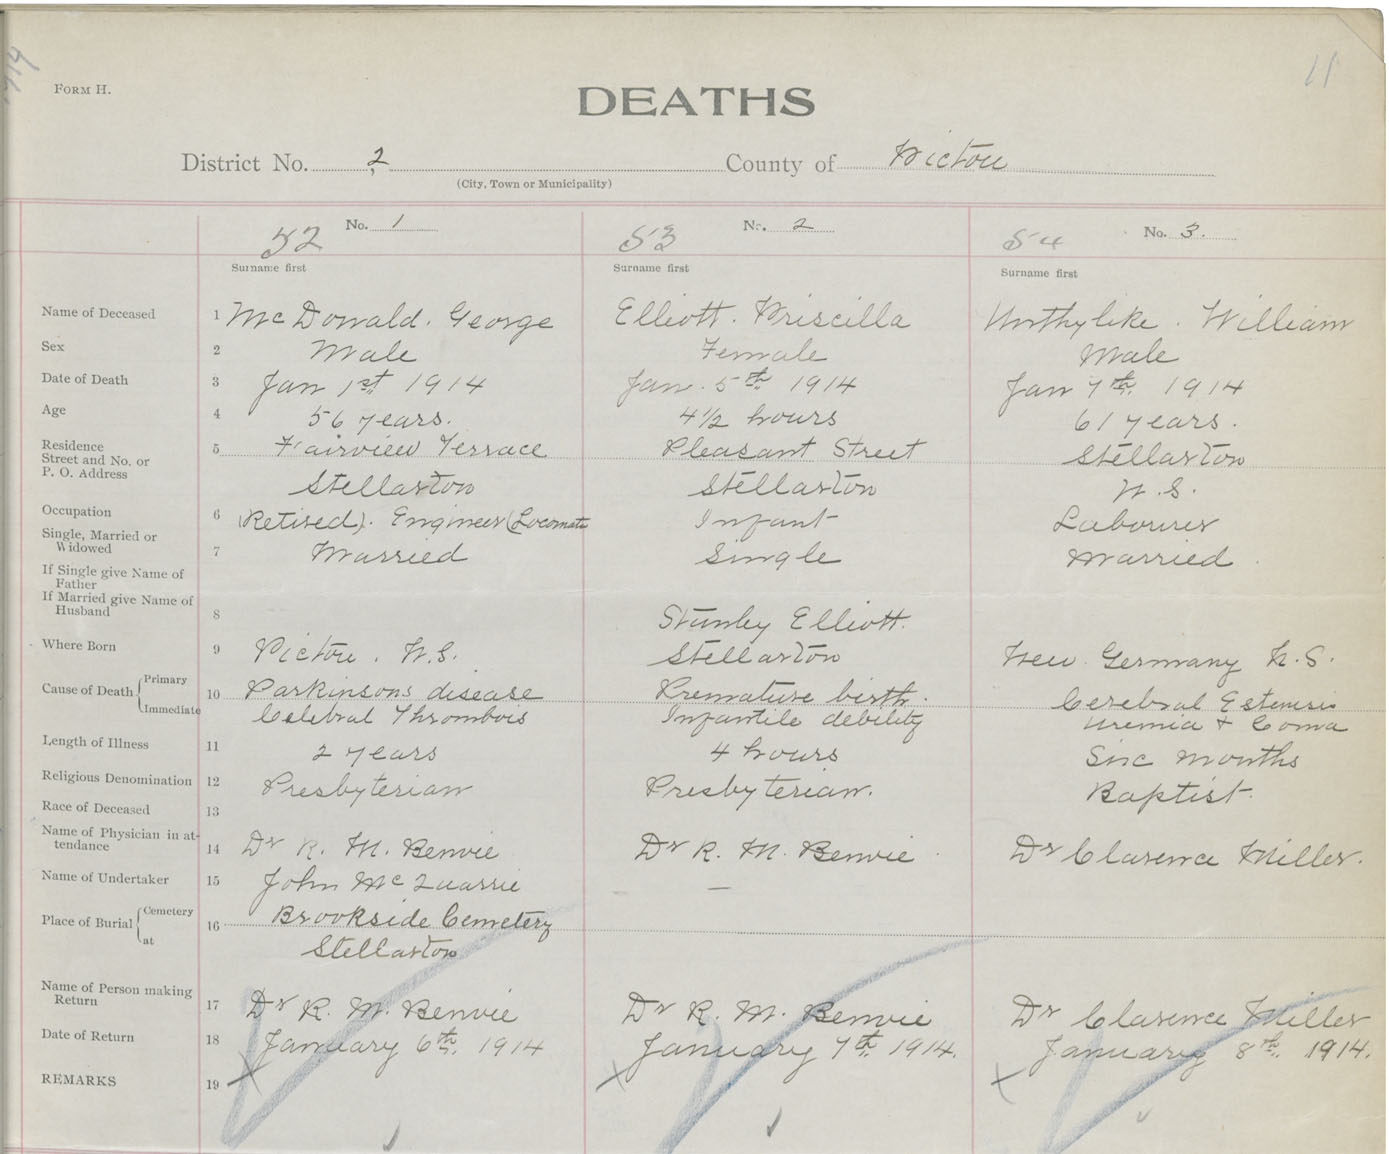 1914
11
FORM H.
DEATHS
District No. 2 County of Pictou
(City, Town or Municipality)
52 No. 1 53 No. 2 54 No. 3.
Surname first Surname first Surname first
Name of Deceased 1 McDonald. George Elliott. Priscilla William
Sex 2 Male Female Male
Date of Death 3 Jan 1st 1914 Jan. 5th 1914 Jan 7th 1914
Age 4 56 years. 4½ hours 61 years.
Residence
Street and No. or 5 Fairview Terrace Pleasant Street Stellarton
P. O. Address Stellarton Stellarton N.S.
Occupation 6 (Retired). Engineer (Locomotive Infant Labourer
Single, Married or
Widowed 7 Married Single Married
If Single give Name of
Father
If Married give Name of
Husband 8 Stanley Elliott.
Where Born 9 Pictou. N.S. Stellarton New Germany N.S.
Cause of Death { Primary 10 Parkinsons disease Premature birth. Cerebral
Immediate Celebral Thrombois Infantile debility Uremia + Coma
Length of Illness 11 2 years 4 hours Six months
Religious Denomination 12 Presbyterian Presbyterian. Baptist.
Race of Deceased 13
Name of Physician in at-
tendance 14 Dr R. M. Benvie Dr R. M. Benvie Dr Clarence Miller.
Name of Undertaker 15 John McQuarrie —
Place of Burial { Cemetery 16 Brookside Cemetery
at Stellarton
Name of Person making
Return 17 Dr R. M. Benvie Dr R. M. Benvie Dr Clarence Miller
Date of Return 18 January 6th. 1914 January 7th 1914. January 8th. 1914.
REMARKS 19